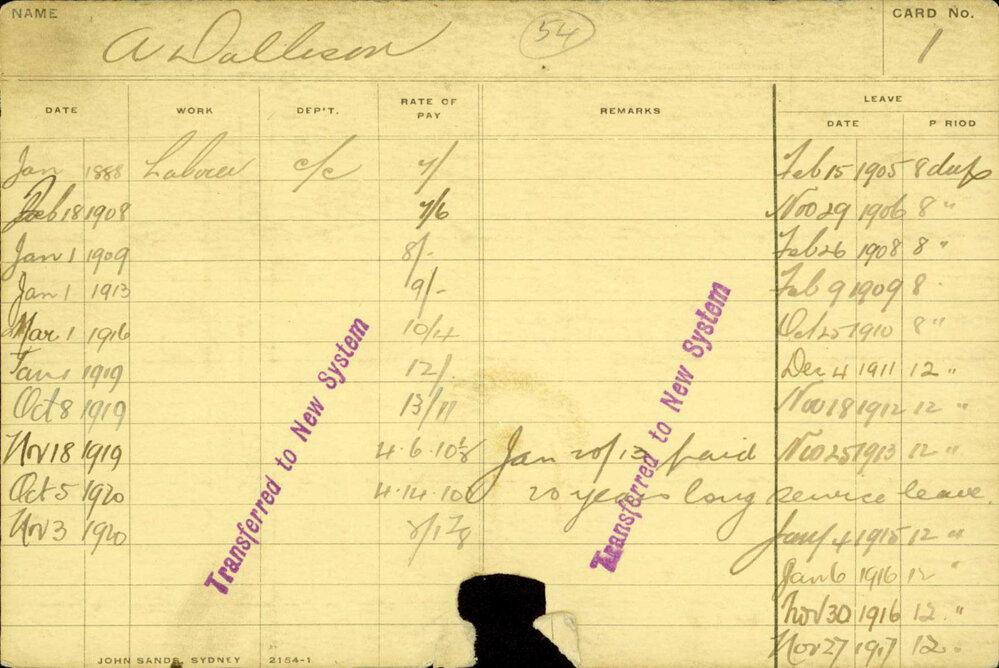 NAME A Dallison 54 CARD No. 1
DATE WORK DEP'T. RATE OF PAY REMARKS LEAVE
DATE P RIOD
Jan 1888 Laborer c/c 7/ Feb 15 1905 8 days
Feb 18 1908 7/6 Nov 29 1906 8 "
Jan 1 1909 8/- Feb 26 1908 8 "
Jan 1 1913 9/- Feb 9 1909 8 "
Mar 1 1916 10/4 Oct 25 1910 8 "
Jan 1 1919 12/- Dec 4 1911 12 "
Oct 8 1919 13/11 Nov 18 1912 12 "
Nov 18 1919 4.6.10½ Jan 20/13 paid Nov 25 1913 12 "
Oct 5 1920 4.14.10 20 years long service leave.
Nov 3 1920 Jany 4 1915 12 "
Jan 6 1916 12 "
Nov 30 1916 12 "
Nov 27 1917 12 "
Transferred to New System
Transferred to New System
JOHN SANDS, SYDNEY 2154-1